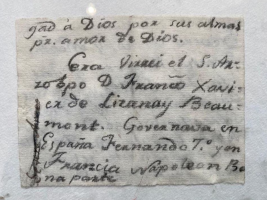 gad á Dios por sus almas
pr. amor de Dios.
Era Virrei el S. Ar-
zobpo D. Franco Xavi-
er de Lizanay Beau-
mont. Governava en
España Fernando 7.º y en
Francia Napoleon Bo
naparte